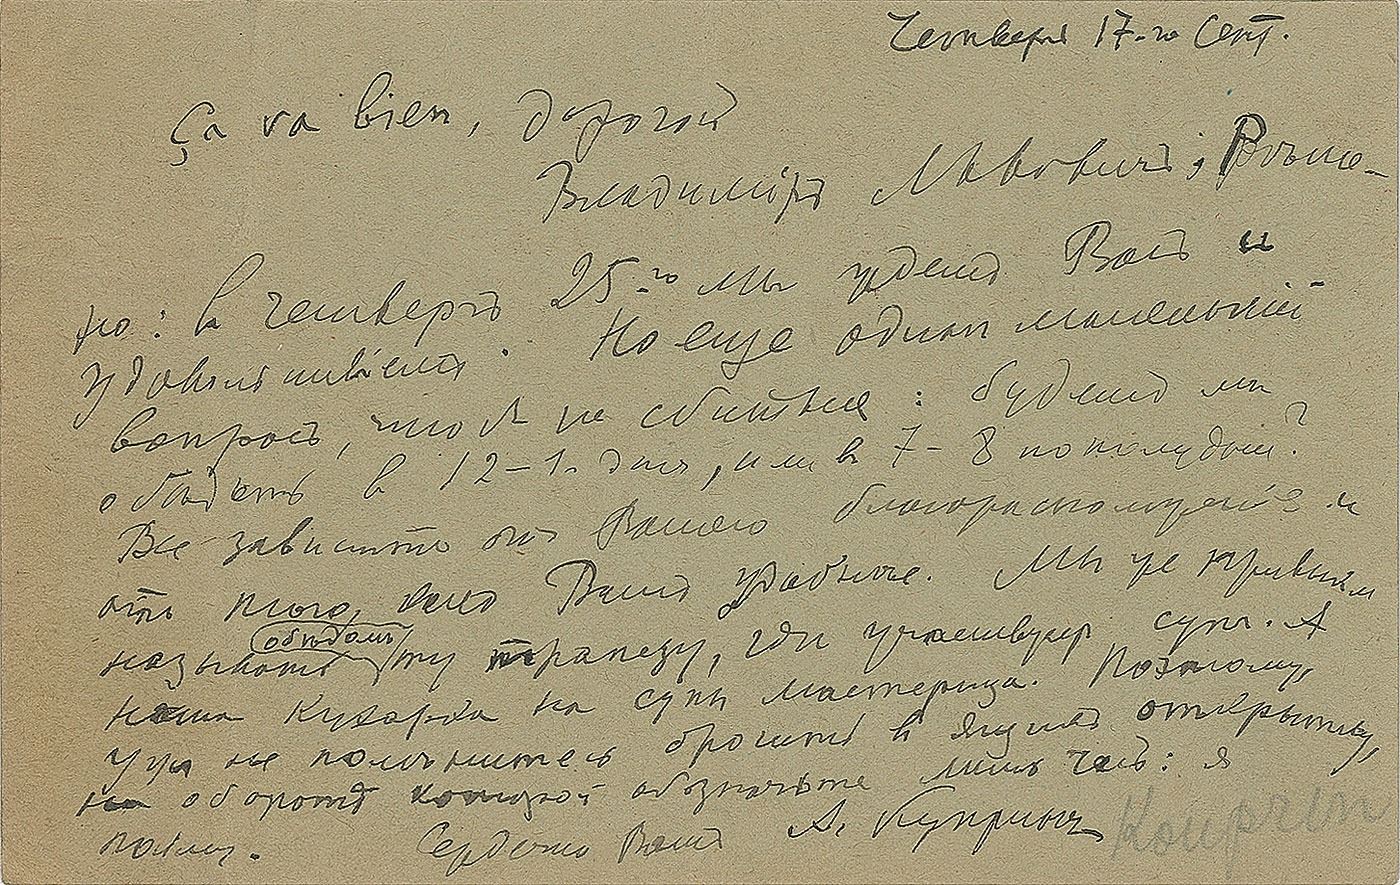 Четверг 17-го Сент.
Ça va bien, дорогой
Владимiръ Львовичъ, Рѣше-
но: в четвергъ 25-го мы ждемъ Васъ и
удовольствiемъ. Но еще один маленькiй
вопросъ, чтоб не сбиться: будемъ мы
обѣдать в 12-1. дня, или в 7-8 пополудни?
Все зависитъ от Вашего благорасположенiя и
отъ того, какъ Вамъ удобнѣе. Мы уже привыкли
называть обѣдомъ ту трапезу, где участвует супъ. А
наша кухарка на супы мастерица. Поэтому,
уж не полѣнитесь бросить в ящикъ открытку,
на оборотѣ которой обозначьте лишь часъ: я
пойму. Сердечно Вашъ А. Купринъ
Kouprin